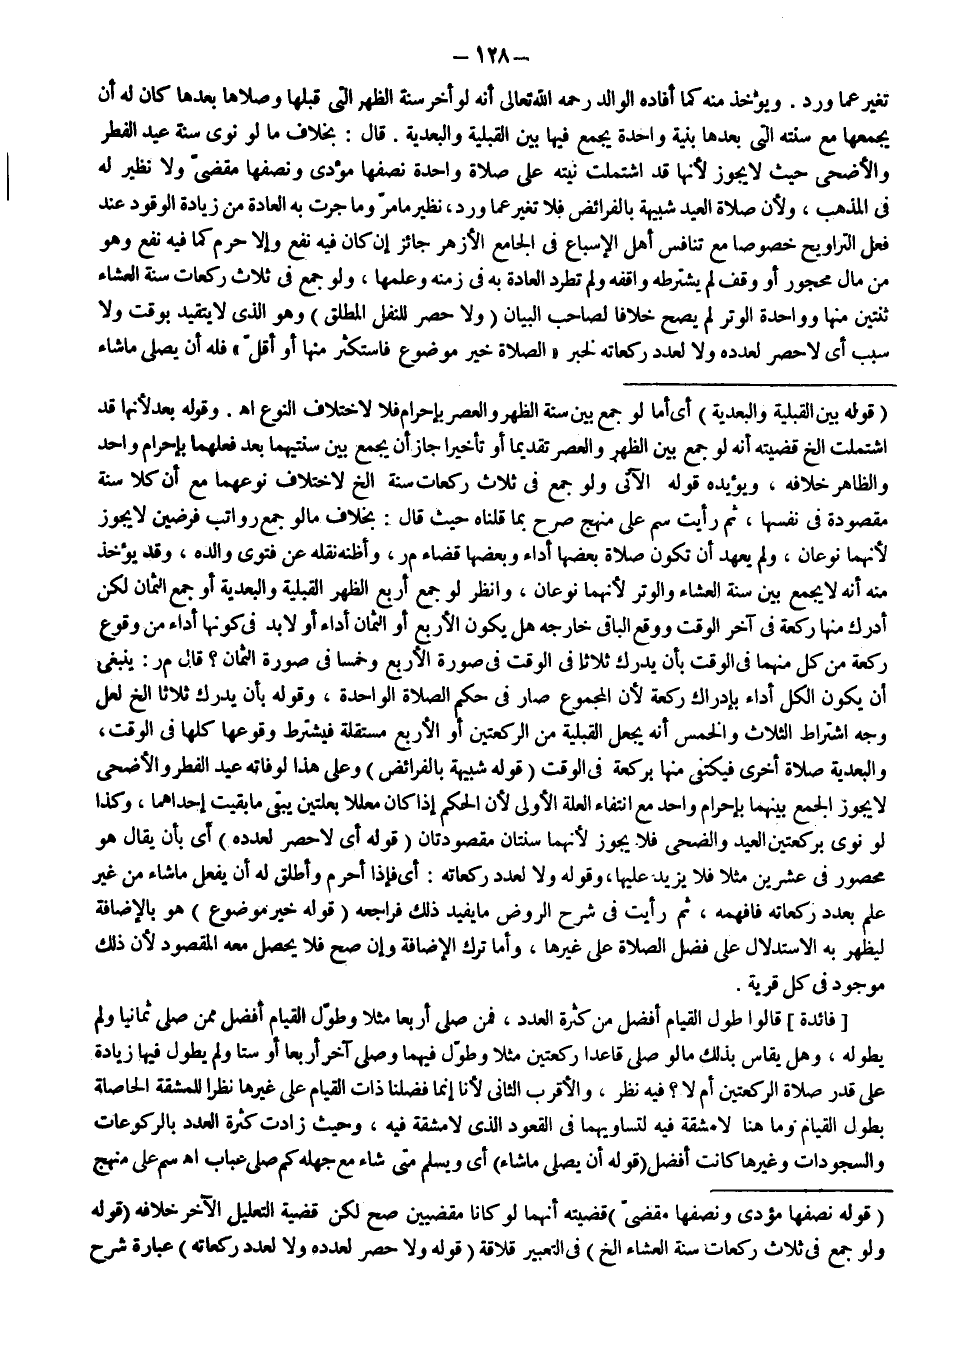 — ١٢٨ —
تغير عما ورد . ويؤخذ منه كما أفاده الوالد رحمه الله تعالى أنه لو أخر سنة الظهر التى قبلها وصلاها بعدها كان له أن
يجمعها مع سنته التى بعدها بنية واحدة يجمع فيها بين القبلية والبعدية . قال : بخلاف ما لو نوى سنة عيد الفطر
والأضحى حيث لا يجوز لأنها قد اشتملت نيته على صلاة واحدة نصفها مؤدى ونصفها مقضىّ ولا نظير له
فى المذهب ، ولأن صلاة العيد شبيهة بالفرائض فلا تغير عما ورد ، نظير مامرّ وما جرت به العادة من زيادة الوقود عند
فعل التراويح خصوصا مع تنافس أهل الإسباع فى الجامع الأزهر جائز إن كان فيه نفع وإلا حرم كما فيه نفع وهو
من مال محجور أو وقف لم يشترطه واقفه ولم تطرد العادة به فى زمنه وعلمها ، ولو جمع فى ثلاث ركعات سنة العشاء
ثنتين منها وواحدة الوتر لم يصح خلافا لصاحب البيان ( ولا حصر للنفل المطلق ) وهو الذى لا يتقيد بوقت ولا
سبب أى لا حصر لعدده ولا لعدد ركعاته لخبر « الصلاة خير موضوع فاستكثر منها أو أقلّ » فله أن يصلى ماشاء
( قوله بين القبلية والبعدية ) أى أما لو جمع بين سنة الظهر والعصر بإحرام فلا لاختلاف النوع اهـ . وقوله بعد لأنها قد
اشتملت الخ قضيته أنه لو جمع بين الظهر والعصر تقديما أو تأخيرا جاز أن يجمع بين سنتيهما بعد فعلهما بإحرام واحد
والظاهر خلافه ، ويؤيده قوله الآتى ولو جمع فى ثلاث ركعات سنة الخ لاختلاف نوعهما مع أن كلا سنة
مقصودة فى نفسها ، ثم رأيت سم على منهج صرح بما قلناه حيث قال : بخلاف مالو جمع رواتب فرضين لا يجوز
لأنهما نوعان ، ولم يعهد أن تكون صلاة بعضها أداء وبعضها قضاء مر ، وأظنه نقله عن فتوى والده ، وقد يؤخذ
منه أنه لا يجمع بين سنة العشاء والوتر لأنهما نوعان ، وانظر لو جمع أربع الظهر القبلية والبعدية أو جمع الثمان لكن
أدرك منها ركعة فى آخر الوقت ووقع الباقى خارجه هل يكون الأربع أو الثمان أداء أو لابد فى كونها أداء من وقوع
ركعة من كل منهما فى الوقت بأن يدرك ثلاثا فى الوقت فى صورة الأربع وخمسا فى صورة الثمان ؟ قال مر : ينبغى
أن يكون الكل أداء بإدراك ركعة لأن المجموع صار فى حكم الصلاة الواحدة ، وقوله بأن يدرك ثلاثا الخ لعل
وجه اشتراط الثلاث والخمس أنه يجعل القبلية من الركعتين أو الأربع مستقلة فيشترط وقوعها كلها فى الوقت ،
والبعدية صلاة أخرى فيكتفى منها بركعة فى الوقت ( قوله شبيهة بالفرائض ) وعلى هذا لو فاته عيد الفطر والأضحى
لا يجوز الجمع بينهما بإحرام واحد مع انتفاء العلة الأولى لأن الحكم إذا كان معللا بعلتين يبقى مابقيت إحداهما ، وكذا
لو نوى بركعتين العيد والضحى فلا يجوز لأنهما سنتان مقصودتان ( قوله أى لا حصر لعدده ) أى بأن يقال هو
محصور فى عشرين مثلا فلا يزيد عليها ، وقوله ولا لعدد ركعاته : أى فإذا أحرم وأطلق له أن يفعل ماشاء من غير
علم بعدد ركعاته فافهمه ، ثم رأيت فى شرح الروض مايفيد ذلك فراجعه ( قوله خير موضوع ) هو بالإضافة
ليظهر به الاستدلال على فضل الصلاة على غيرها ، وأما ترك الإضافة وإن صح فلا يحصل معه المقصود لأن ذلك
موجود فى كل قربة .
[ فائدة ] قالوا طول القيام أفضل من كثرة العدد ، فمن صلى أربعا مثلا وطوّل القيام أفضل ممن صلى ثمانيا ولم
يطوله ، وهل يقاس بذلك مالو صلى قاعدا ركعتين مثلا وطوّل فيهما وصلى آخر أربعا أو ستا ولم يطول فيها زيادة
على قدر صلاة الركعتين أم لا ؟ فيه نظر ، والأقرب الثانى لأنا إنما فضلنا ذات القيام على غيرها نظرا للمشقة الحاصلة
بطول القيام وما هنا لا مشقة فيه لتساويهما فى القعود الذى لا مشقة فيه ، وحيث زادت كثرة العدد بالركوعات
والسجودات وغيرها كانت أفضل (قوله أن يصلى ماشاء) أى ويسلم متى شاء مع جهله كم صلى عباب اهـ سم على منهج
( قوله نصفها مؤدى ونصفها مقضىّ ) قضيته أنهما لو كانا مقضيين صح لكن قضية التعليل الآخر خلافه (قوله
ولو جمع فى ثلاث ركعات سنة العشاء الخ ) فى التعبير قلاقة ( قوله ولا حصر لعدده ولا لعدد ركعاته ) عبارة شرح